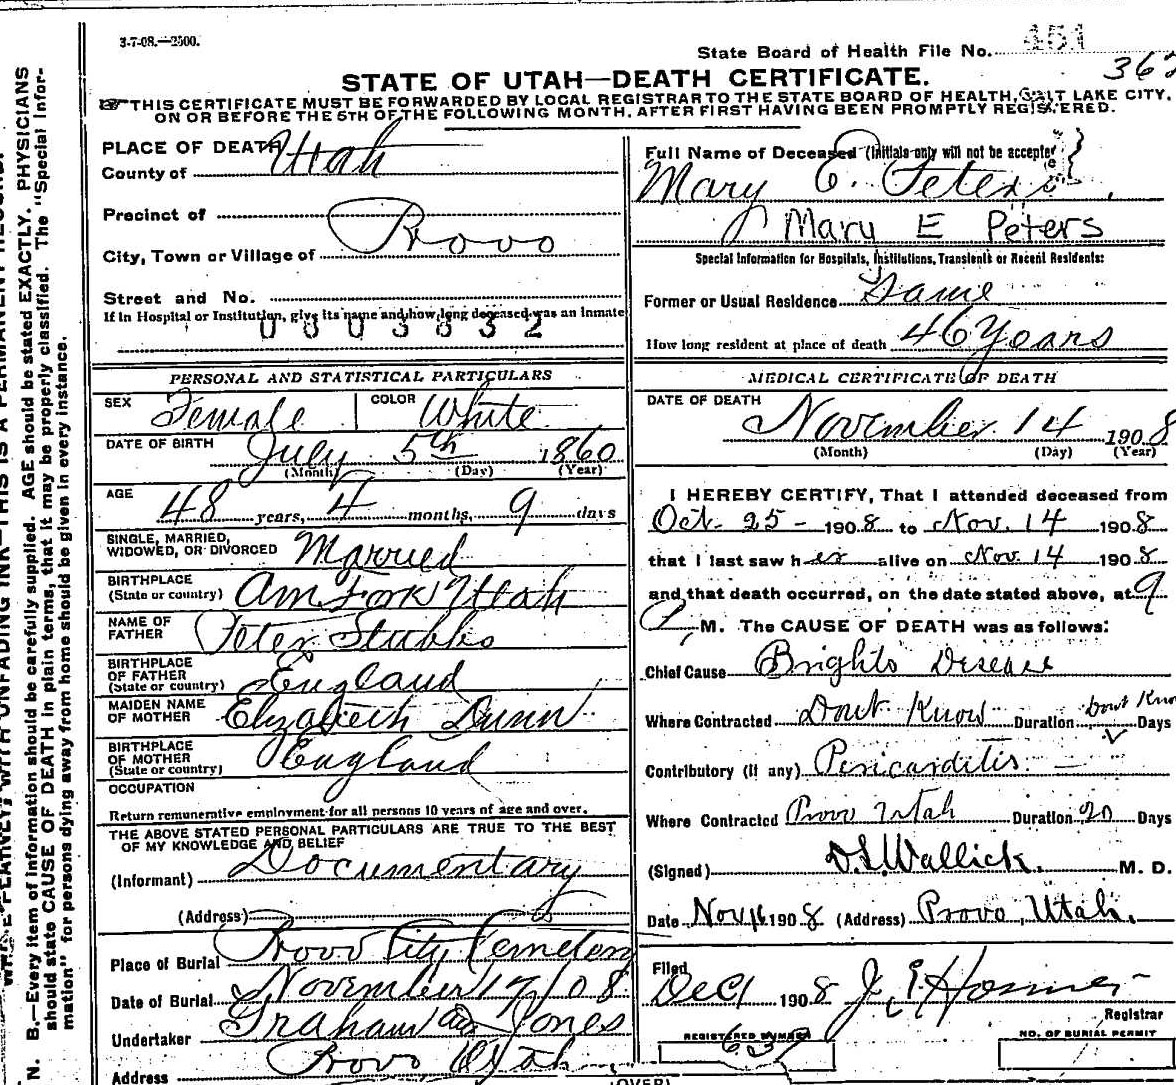 3-7-08.—2500.
State Board of Health File No. 451
362
STATE OF UTAH—DEATH CERTIFICATE.
THIS CERTIFICATE MUST BE FORWARDED BY LOCAL REGISTRAR TO THE STATE BOARD OF HEALTH, SALT LAKE CITY,
ON OR BEFORE THE 5TH OF THE FOLLOWING MONTH, AFTER FIRST HAVING BEEN PROMPTLY REGISTERED.
PLACE OF DEATH
County of Utah
Precinct of
City, Town or Village of Provo
Street and No.
If in Hospital or Institution, give its name and how long deceased was an inmate
0003832
PERSONAL AND STATISTICAL PARTICULARS
SEX Female COLOR White
DATE OF BIRTH July 5th 1860
(Month) (Day) (Year)
AGE 48 years, 4 months, 9 days
SINGLE, MARRIED,
WIDOWED, OR DIVORCED Married
BIRTHPLACE
(State or country) Am Fork Utah
NAME OF
FATHER Peter Stubbs
BIRTHPLACE
OF FATHER
(State or country) England
MAIDEN NAME
OF MOTHER Elizabeth Dunn
BIRTHPLACE
OF MOTHER
(State or country) England
OCCUPATION
Return remunerative employment for all persons 10 years of age and over.
THE ABOVE STATED PERSONAL PARTICULARS ARE TRUE TO THE BEST
OF MY KNOWLEDGE AND BELIEF
(Informant) Documentary
(Address)
Place of Burial Provo City Cemetery
Date of Burial November 17/08
Undertaker Graham and Jones
Address Provo Utah
Full Name of Deceased (Initials only will not be accepted)
Mary E. Peters
Mary E Peters
Special Information for Hospitals, Institutions, Transients or Recent Residents:
Former or Usual Residence Same
How long resident at place of death 46 Years
MEDICAL CERTIFICATE OF DEATH
DATE OF DEATH
November 14 1908
(Month) (Day) (Year)
I HEREBY CERTIFY, That I attended deceased from
Oct. 25 - 1908 to Nov. 14 1908
that I last saw her alive on Nov. 14 1908
and that death occurred, on the date stated above, at 9
P. M. The CAUSE OF DEATH was as follows:
Chief Cause Brights Disease
Where Contracted Dont Know Duration Dont Know Days
Contributory (if any) Pericarditis
Where Contracted Provo Utah Duration 20 Days
(Signed) D.L. Wallick. M. D.
Date Nov 16 1908 (Address) Provo, Utah.
Filed
Dec 1 1908 J. E. Hosmer
Registrar
REGISTERED NUMBER
NO. OF BURIAL PERMIT
(OVER)
N. B.—Every item of information should be carefully supplied. AGE should be stated EXACTLY. PHYSICIANS
should state CAUSE OF DEATH in plain terms, that it may be properly classified. The "Special Infor-
mation" for persons dying away from home should be given in every instance.